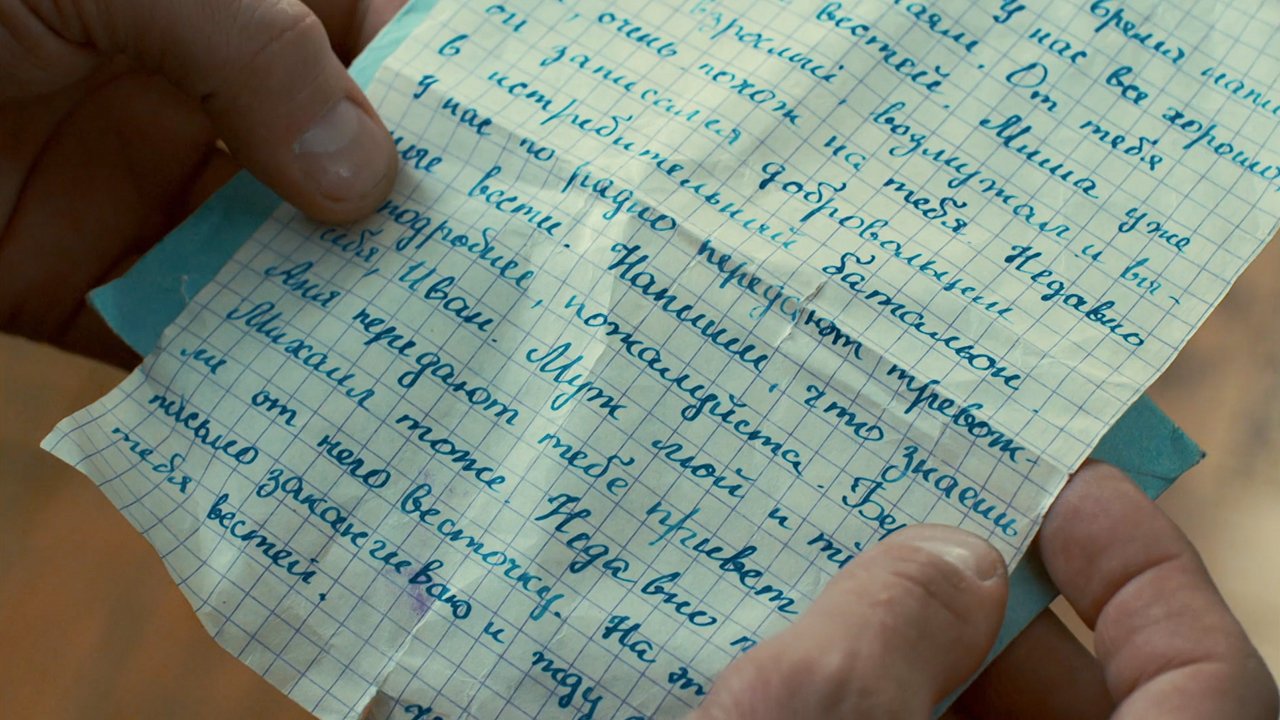 время
У нас все хорошо
От тебя
вестей. Миша уже
взрослый, возмужал и вы-
очень похож на тебя. Недавно
он записался добровольцем
в истребительный батальон.
У нас по радио передают тревож-
ные вести. Напиши, что знаешь
подробнее, пожалуйста. Бе
себя, Иван. Муж мой и
Аня передают тебе привет
Михаил тоже. Недавно п
ли от него весточку. На эт
письмо заканчиваю и жду
тебя вестей.